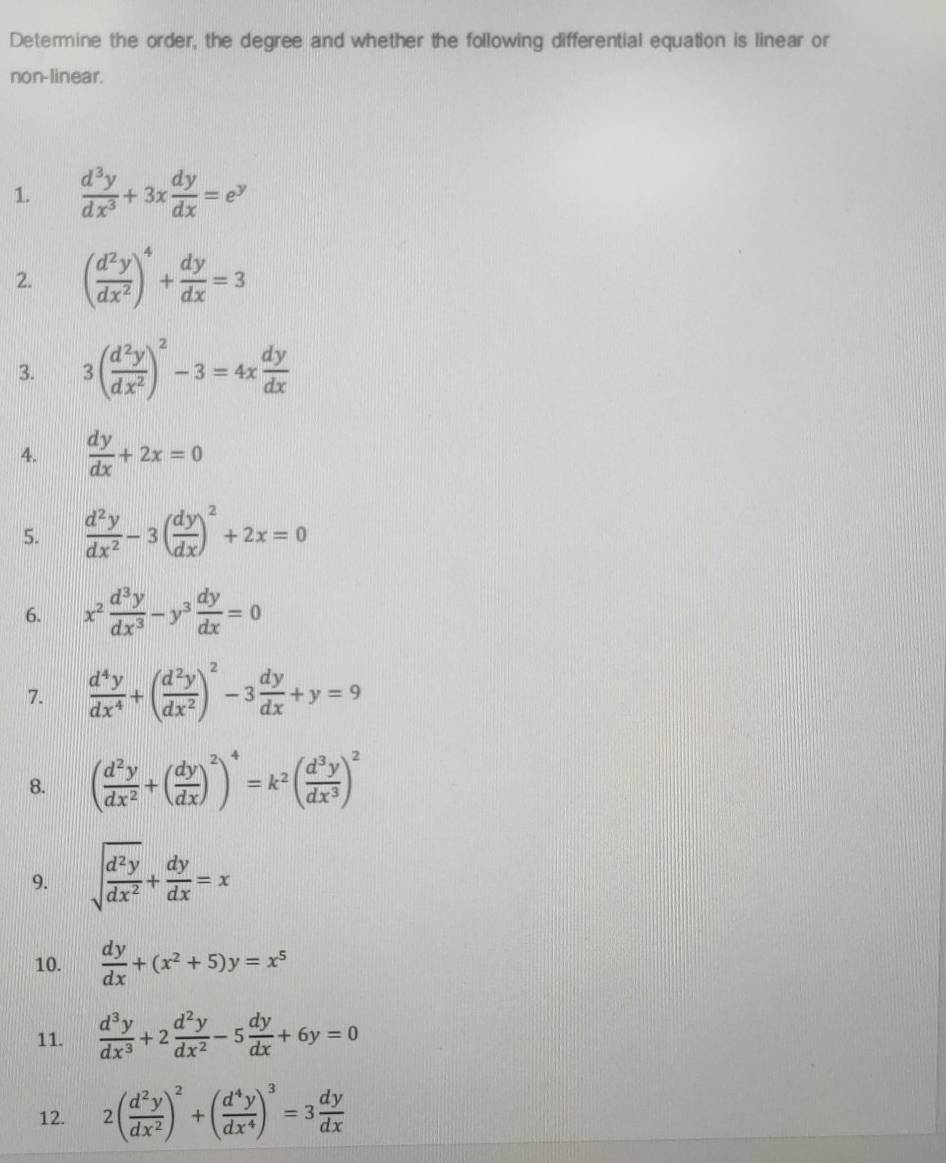 Determine the order, the degree and whether the following differential equation is linear or
non-linear.
1. $\frac{d^3y}{dx^3} + 3x\frac{dy}{dx} = e^y$
2. $\left(\frac{d^2y}{dx^2}\right)^4 + \frac{dy}{dx} = 3$
3. $3\left(\frac{d^2y}{dx^2}\right)^2 - 3 = 4x\frac{dy}{dx}$
4. $\frac{dy}{dx} + 2x = 0$
5. $\frac{d^2y}{dx^2} - 3\left(\frac{dy}{dx}\right)^2 + 2x = 0$
6. $x^2\frac{d^3y}{dx^3} - y^3\frac{dy}{dx} = 0$
7. $\frac{d^4y}{dx^4} + \left(\frac{d^2y}{dx^2}\right)^2 - 3\frac{dy}{dx} + y = 9$
8. $\left(\frac{d^2y}{dx^2} + \left(\frac{dy}{dx}\right)^2\right)^4 = k^2\left(\frac{d^3y}{dx^3}\right)^2$
9. $\sqrt{\frac{d^2y}{dx^2}} + \frac{dy}{dx} = x$
10. $\frac{dy}{dx} + (x^2 + 5)y = x^5$
11. $\frac{d^3y}{dx^3} + 2\frac{d^2y}{dx^2} - 5\frac{dy}{dx} + 6y = 0$
12. $2\left(\frac{d^2y}{dx^2}\right)^2 + \left(\frac{d^4y}{dx^4}\right)^3 = 3\frac{dy}{dx}$